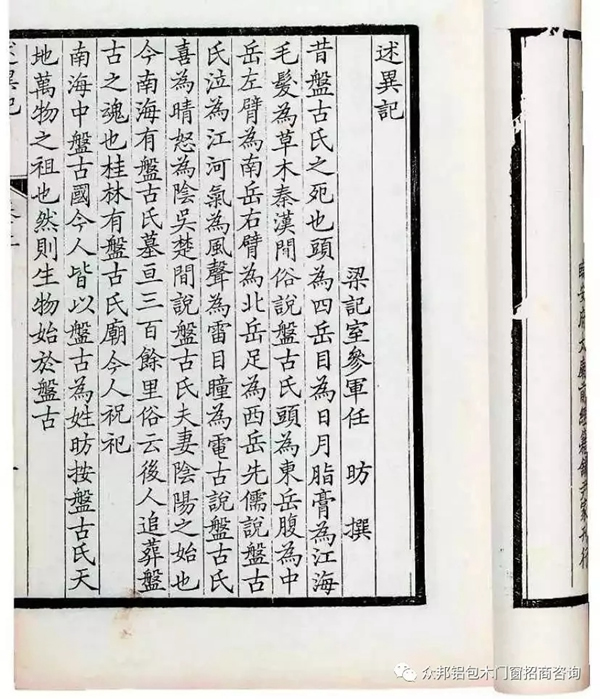 臨安府太廟前經籍鋪尹家刊行
述異記
梁記室參軍任 昉 撰
昔盤古氏之死也頭為四岳目為日月脂膏為江海
毛髮為草木秦漢間俗說盤古氏頭為東岳腹為中
岳左臂為南岳右臂為北岳足為西岳先儒說盤古
氏泣為江河氣為風聲為雷目瞳為電古說盤古氏
喜為晴怒為陰吳楚間說盤古氏夫妻陰陽之始也
今南海有盤古氏墓亘三百餘里俗云後人追葬盤
古之魂也桂林有盤古氏廟今人祝祀
南海中盤古國今人皆以盤古為姓昉按盤古氏天
地萬物之祖也然則生物始於盤古
众邦铝包木门窗招商咨询